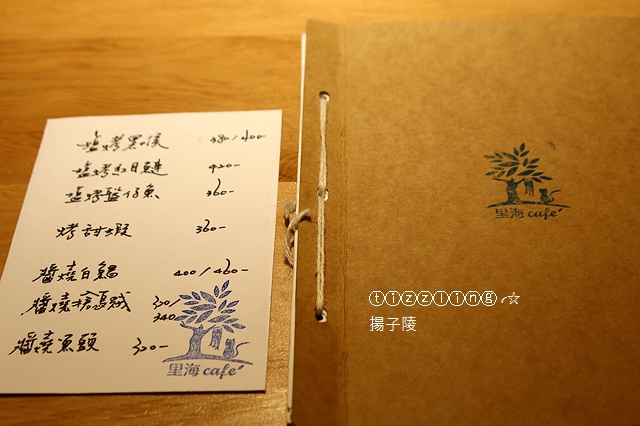 塩烤黑喉 380/400-
塩烤紅目鰱 420-
塩烤盤仔魚 360-
烤甜蝦 360-
醬燒白鯧 400/460-
醬燒 330/
340-
醬燒魚頭 320-
里海 café
里海 café
tizzling
揚子陵